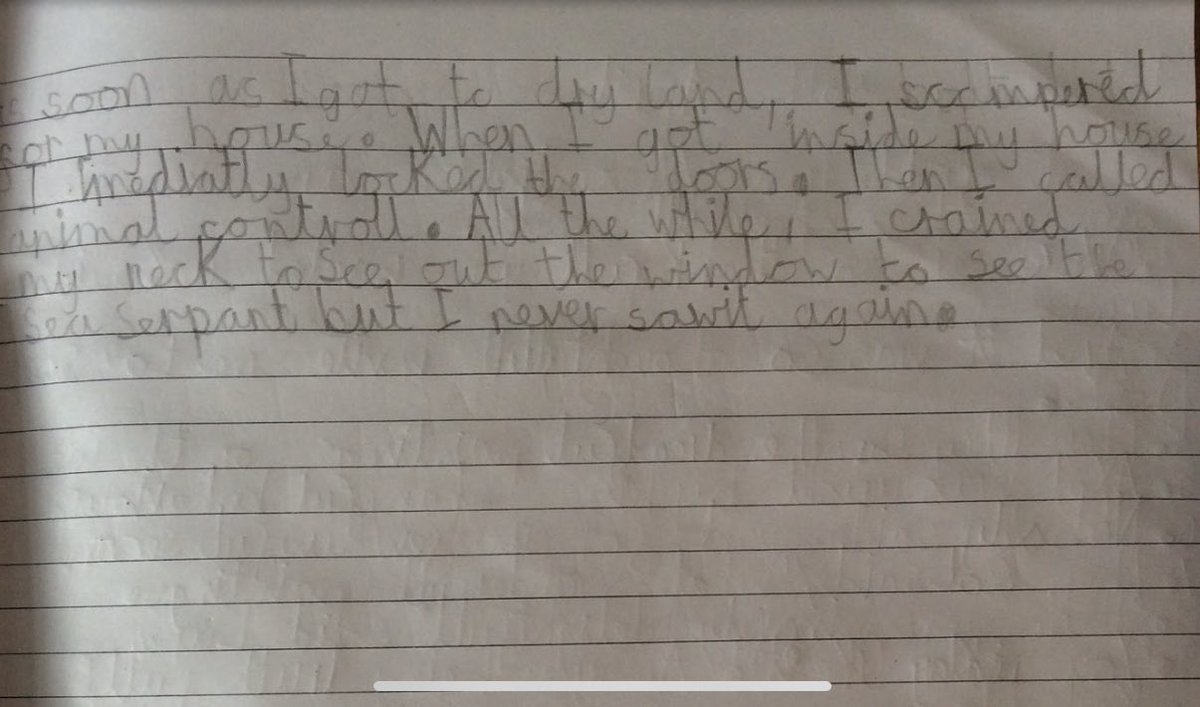 soon as I got to dry land, I scampered
for my house. When I got inside my house
I imediatly locked the doors. Then I called
animal controll. All the while, I crained
my neck to see out the window to see the
sea serpant but I never saw it again.